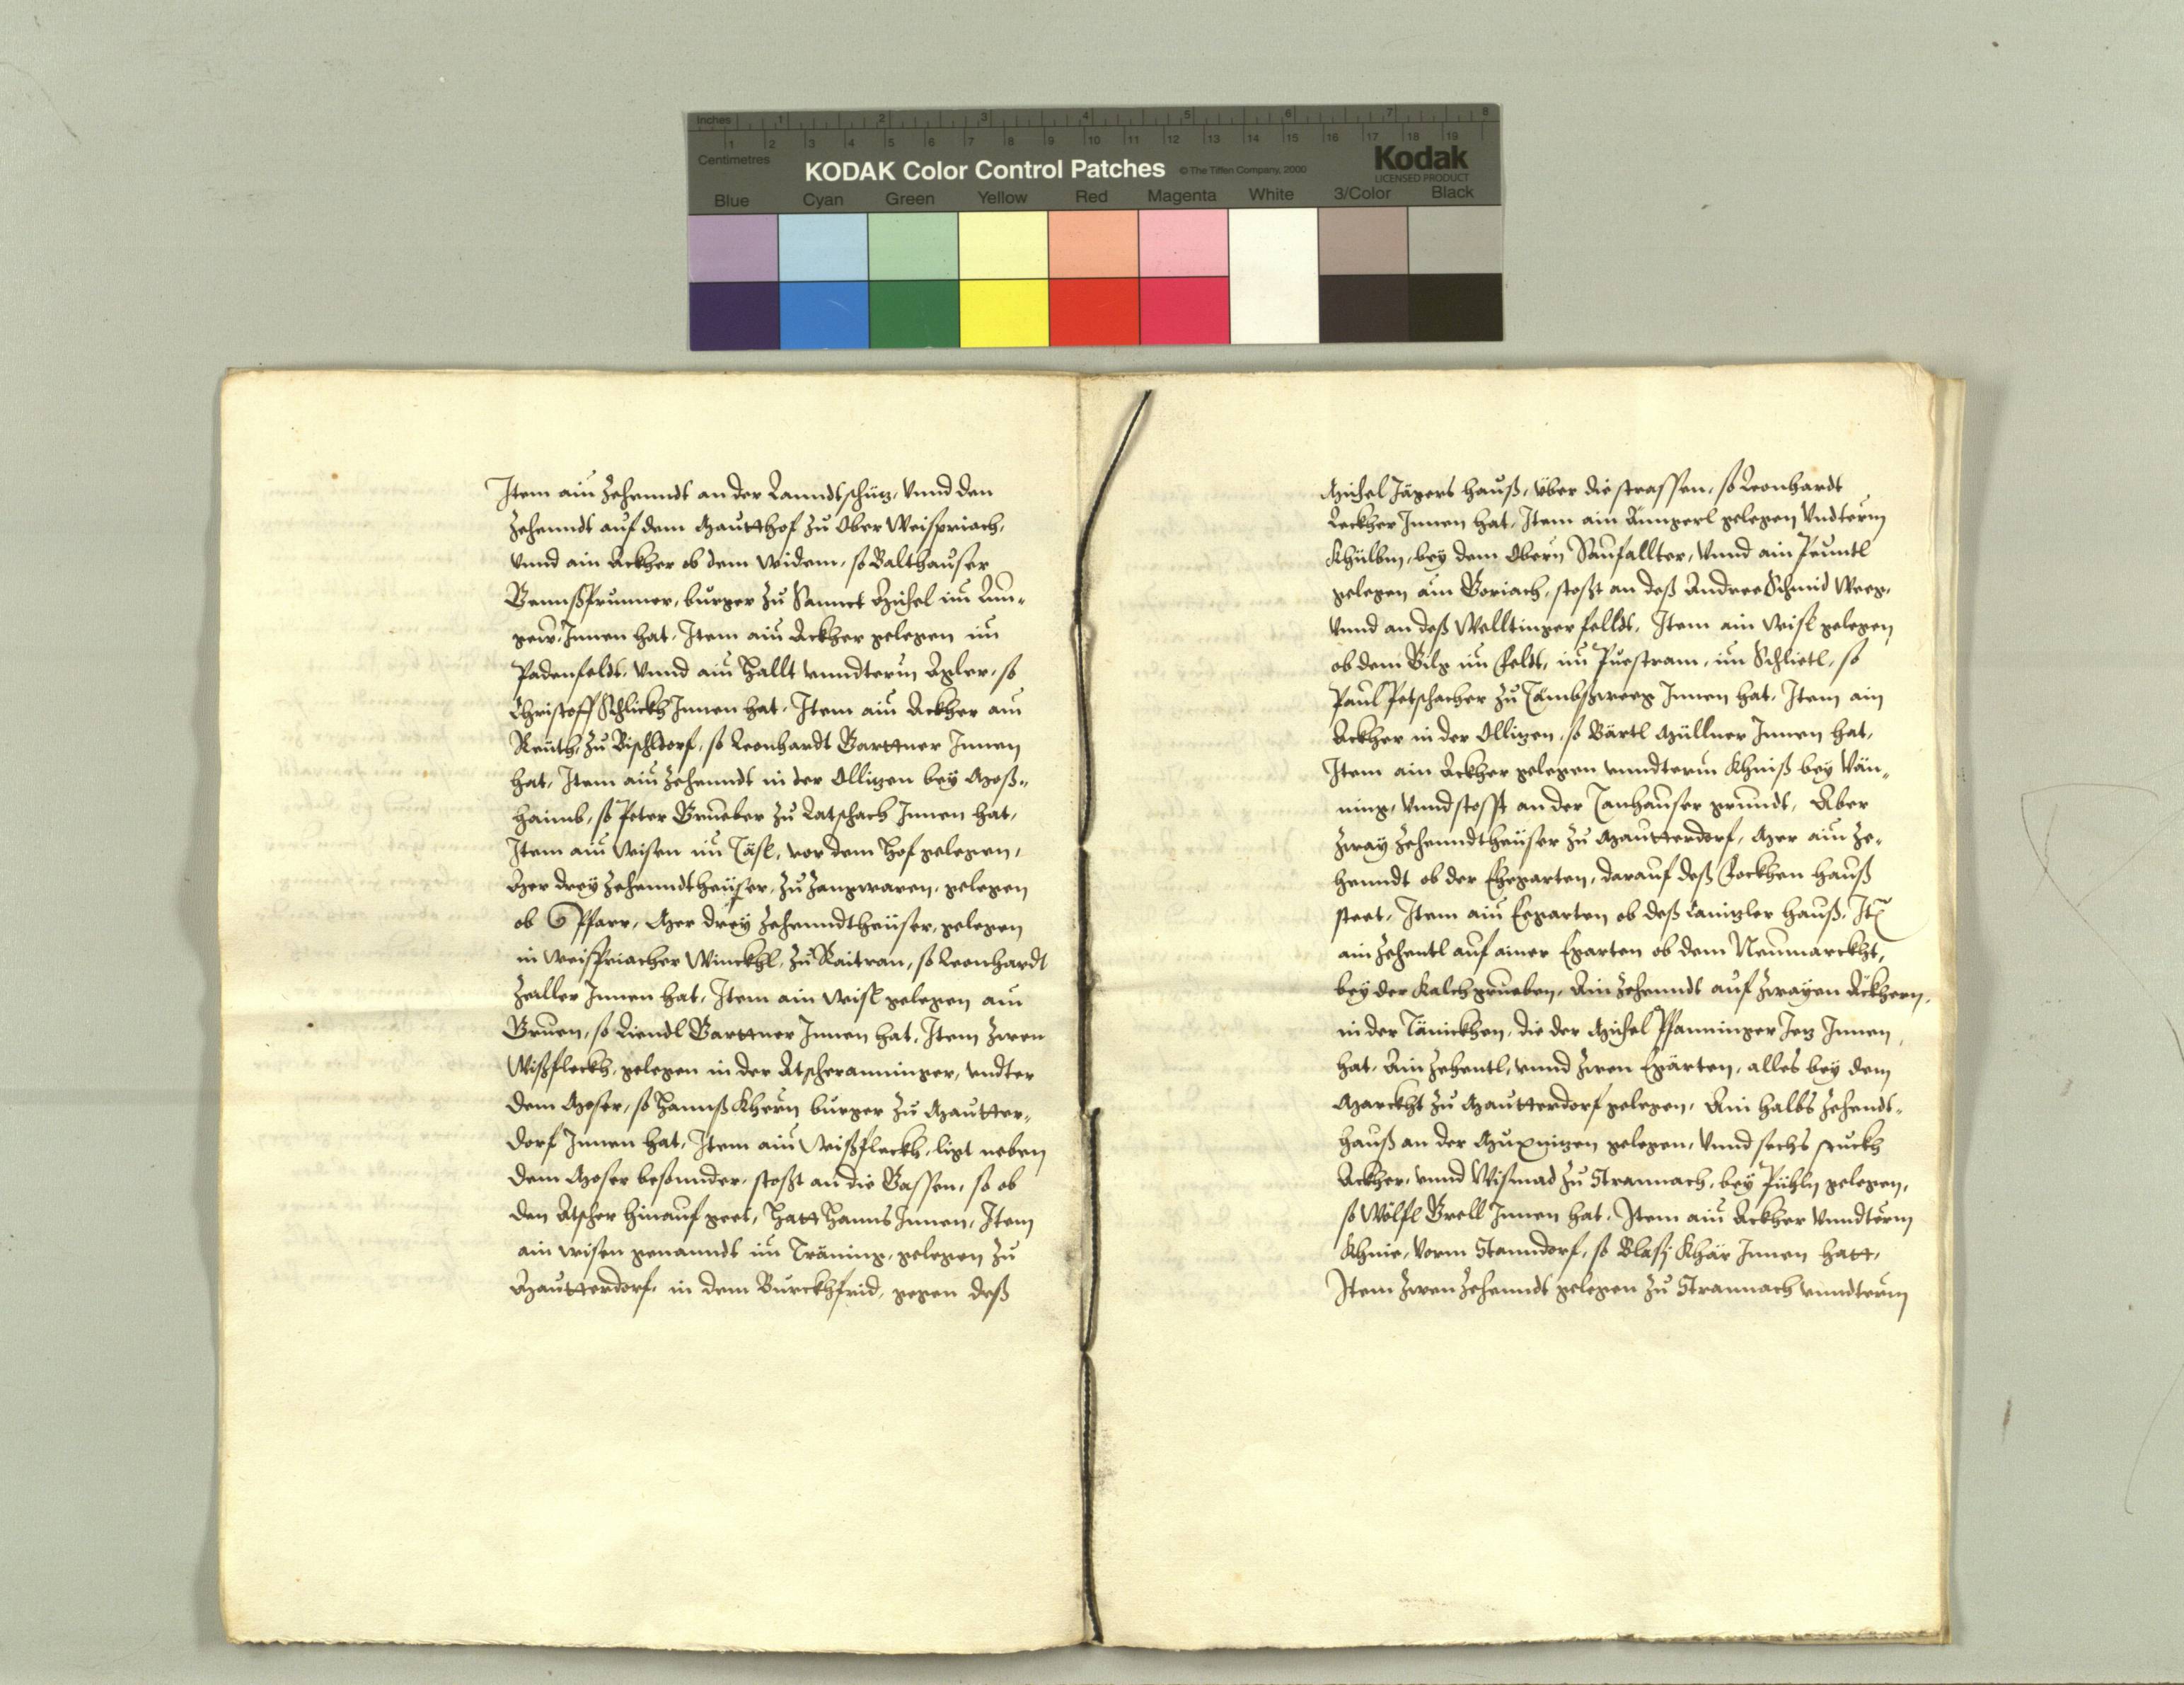 Inches 1 2 3 4 5 6 7 8
1 2 3 4 5 6 7 8 9 10 11 12 13 14 15 16 17 18 19
Centimetres
KODAK Color Control Patches © The Tiffen Company, 2000 Kodak
LICENSED PRODUCT
Blue Cyan Green Yellow Red Magenta White 3/Color Black
Item ain Zehenndt an der Lanndtschüz, vnnd den
Zehenndt auf dem Mautthof zu Ober Weispriach,
vnnd ain Ackher ob dem widem, so Balthauser
burger zu Sannct Michel im Lun-
gew, Innen hat, Item ain Ackher gelegen im
Padenfeldt, vnnd ain Hallt vnndterm so
Christoff Schlickh Innen hat, Item ain Ackher am
Reuth, zu Pischldorf, so Leonhardt Garttner Innen
hat, Item ain Zehenndt in der Ollizen bey Moß-
haimb, so Peter Grueber zu Latschach Innen hat,
Item ain Wisen im Täfl, vor dem Hof gelegen,
Mer drey Zehenndtheüser, zu Zangwaren, gelegen
ob Pfarr, Mer drey Zehenndtheüser, gelegen
in Weispriacher Winckhl, zu Raitran, so Leonhardt
Zaller Innen hat, Item ain wisl gelegen am
Gruen, so Liendl Garttner Innen hat, Item zwen
Wißfleckh, gelegen in der Atscheranninger, vndter
dem Moser, so Hannß Khern burger zu Mautter-
dorf Innen hat, Item ain Wißfleckh, ligt neben
dem Moser besonnder, stoßt an die Gassen, so ob
den Atscher hinauf geet, Hatt Hanns Innen, Item
ain wisen genanndt im Träning, gelegen zu
Mautterdorf, in dem Burckhfrid, gegen deß
Michel Jägers hauß, über die strassen, so Leonhardt
Leckher Innen hat, Item ain Anngerl gelegen vndterm
Khülbm, bey dem Obern Saufallter, vnnd ain Peuntl
gelegen am Goriach, stoßt an deß Andree Schmid Weeg,
vnnd an deß Welltinger felldt, Item ain wisl gelegen
ob dem Bilg im Feldt, im Puestram, im Schlietl, so
Paul Petschacher zu Tämbsweeg Innen hat, Item ain
Ackher in der Ollizen, so Bärtl Müllner Innen hat,
Item ain Ackher gelegen vnndterm Khniß bey Vän-
ning, vnnd stosst an der Tanhauser grundt, Aber
zway Zehenndtheüser zu Mautterdorf, Mer ain Ze-
henndt ob der Ehegarten, darauf deß Fockhen hauß
steet, Item ain Eegarten ob deß Canzler hauß, Itē
ain Zehentl auf ainer Egarten ob dem Neumarckht,
bey der Kalchgrueben, Ain Zehenndt auf zwayen Äckhern,
in der Tänickhen, die der Michel Pfanninger Jez Innen
hat, Ain Zehentl, vnnd zwen Egärten, alles bey dem
Marckht zu Mautterdorf gelegen, Ain halbs Zehendt-
hauß an der Murgnizen gelegen, vnnd sechs stuckh
Ackher, vnnd Wismad zu Strannach, bey Pühln gelegen,
so Wölfl Grell Innen hat, Item ain Ackher vnndterm
Khnie, vorm Stanndorf, so Blasj Khär Innen hatt,
Item zwen Zehenndt gelegen zu Strannach vnndterm